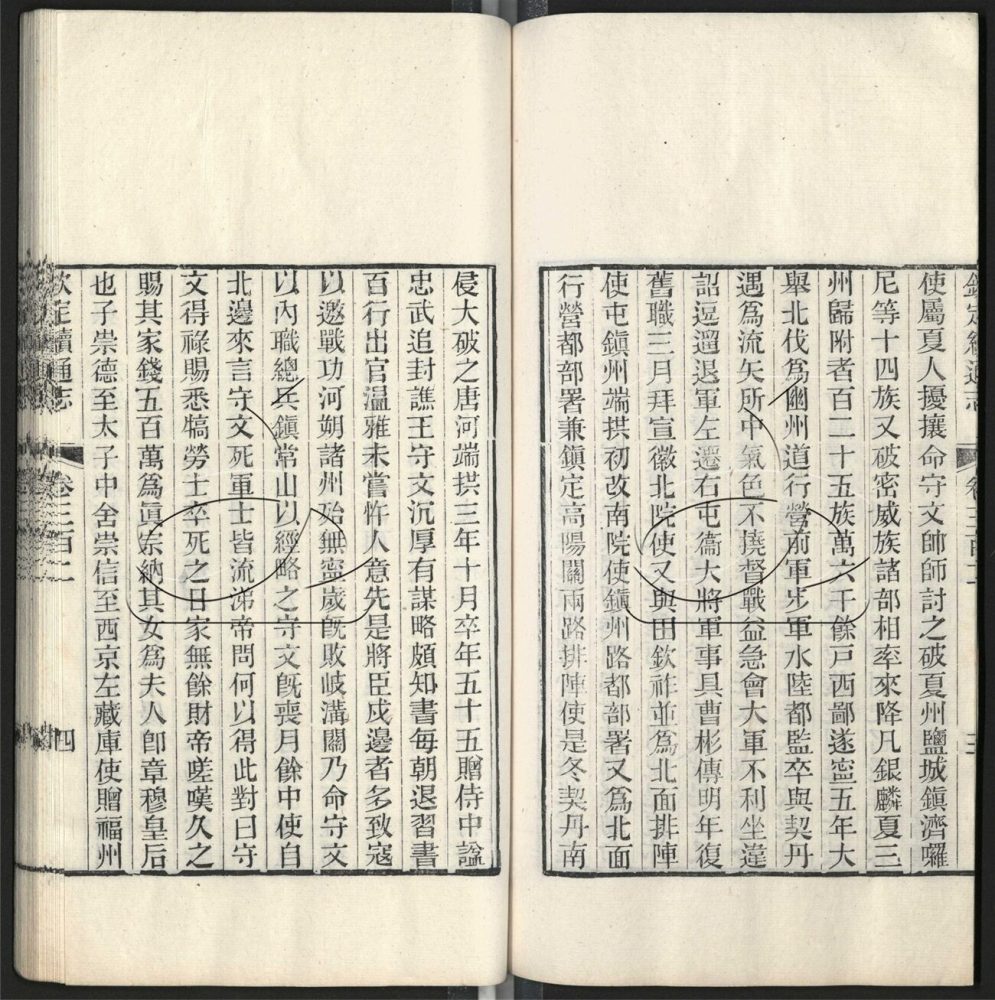 欽定續通志 卷三百二 三
使屬夏人擾攘命守文帥師討之破夏州鹽城鎮濟囉
尼等十四族又破密威族諸部相率來降凡銀麟夏三
州歸附者百二十五族萬六千餘戸西鄙遂寍五年大
舉北伐爲幽州道行營前軍步軍水陸都監卒與契丹
遇爲流矢所中氣色不撓督戰益急會大軍不利坐違
詔逗遛退軍左遷右屯衞大將軍事具曹彬傳明年復
舊職三月拜宣徽北院使又與田欽祚並爲北面排陣
使屯鎮州端拱初改南院使鎮州路都部署又爲北面
行營都部署兼鎮定高陽關兩路排陣使是冬契丹南
侵大破之唐河端拱三年十月卒年五十五贈侍中諡
忠武追封譙王守文沉厚有謀略頗知書每朝退習書
百行出官温雅未嘗忤人意先是將臣戍邊者多致寇
以邀戰功河朔諸州殆無寍歲旣敗岐溝關乃命守文
以內職總兵鎮常山以經略之守文旣喪月餘中使自
北邊來言守文死軍士皆流涕帝問何以得此對曰守
文得祿賜悉犒勞士卒死之日家無餘財帝嗟嘆久之
賜其家錢五百萬爲眞宗納其女爲夫人卽章穆皇后
也子崇德至太子中舍崇信至西京左藏庫使贈福州
欽定續通志 卷三百二 四